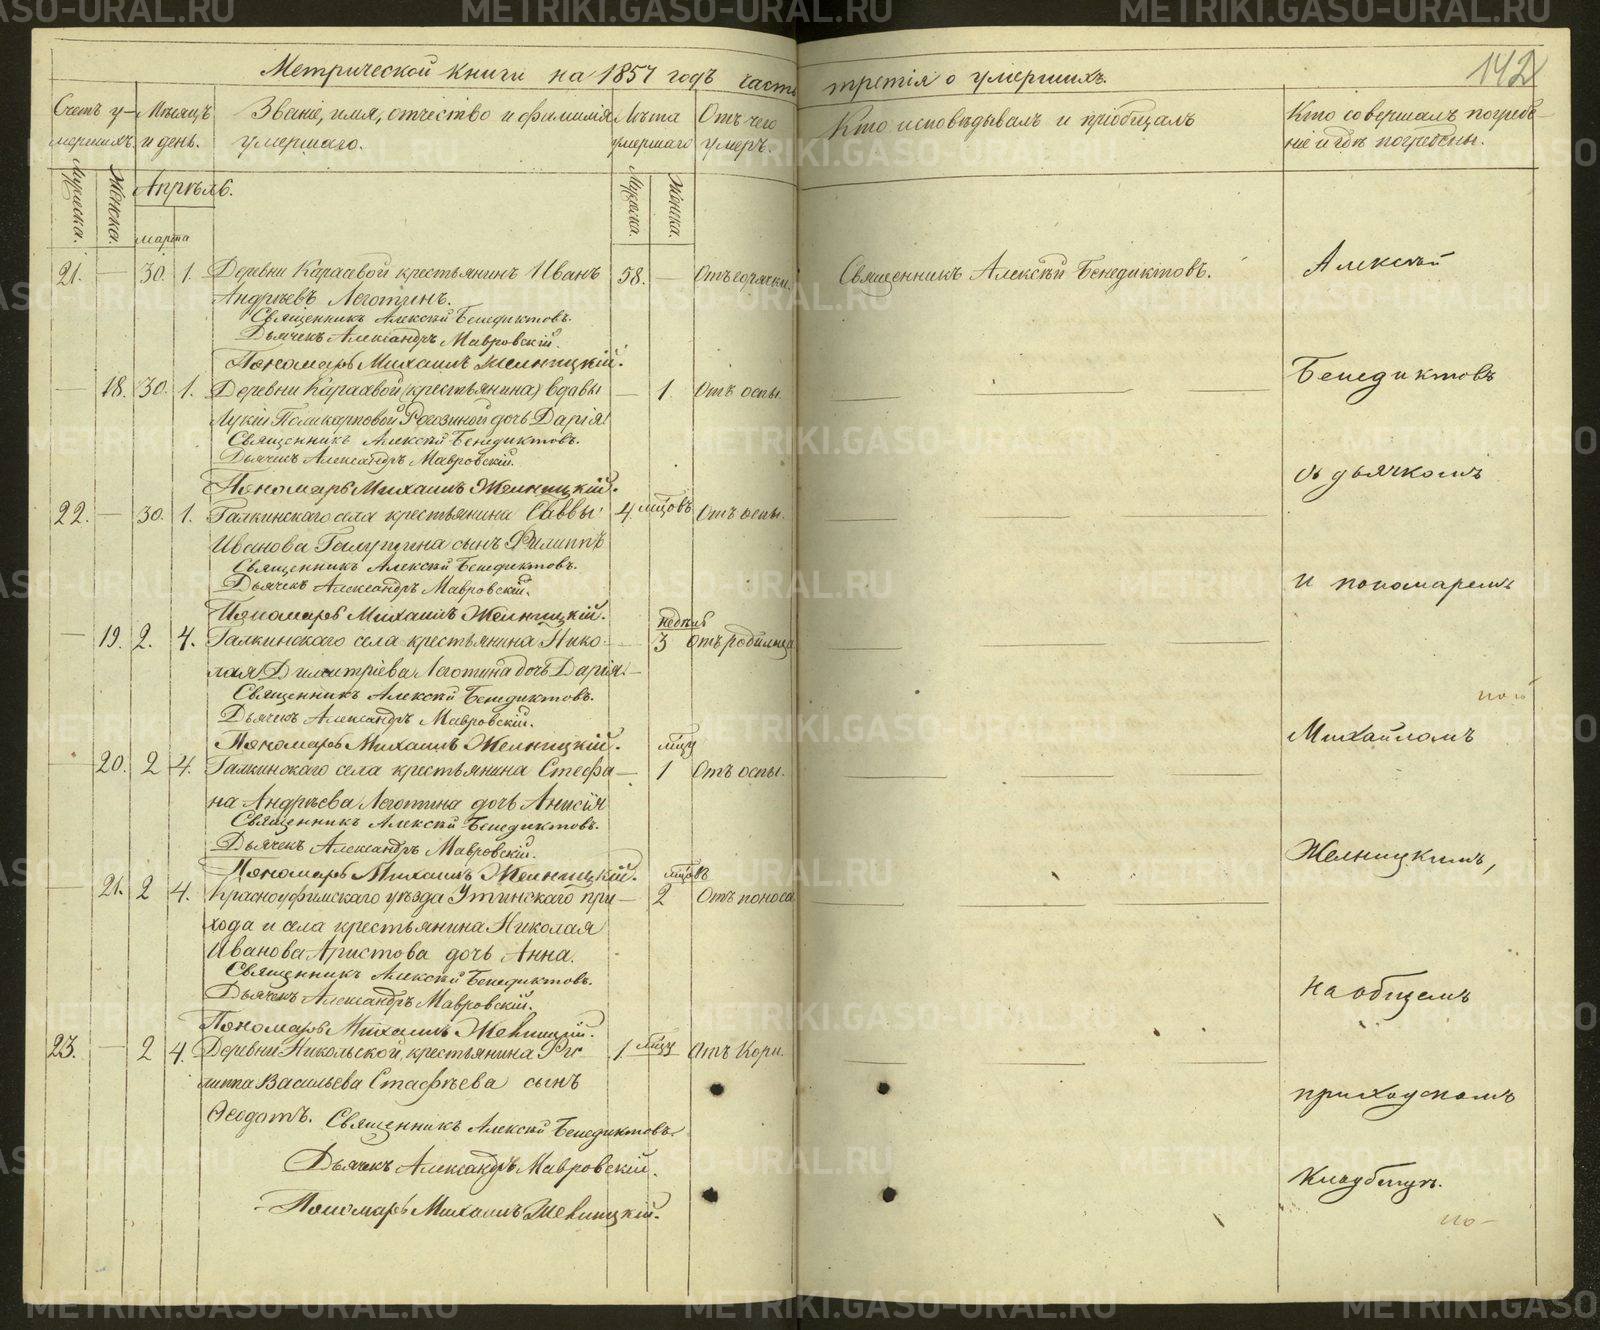 142
Метрической книги на 1857 годъ часть третія о умершихъ.
Счетъ у-
мершихъ.
Мѣсяцъ
и день.
Званіе, имя, отчество и фамилія
умершаго.
Лѣта
умершаго
Отъ чего
умеръ.
Кто исповѣдывалъ и пріобщалъ
Кто совершалъ погребе-
ніе и гдѣ погребены.
Мужеска.
Женска.
Апрѣль.
Марта
Мужеска.
Женска.
21. — 30. 1. Деревни Карасевой крестьянинъ Иванъ 58. — Отъ горячки. Священникъ Алексѣй Бенедиктовъ. Алексѣй
Андрѣевъ Леготинъ.
Священникъ Алексѣй Бенедиктовъ.
Дьячекъ Александръ Мавровскій.
Пономарь Михаилъ Желницкій.
— 18. 30. 1. Деревни Карасевой (крестьянина) вдовы — 1 Отъ оспы. Бенедиктовъ
Поликарповой дочь Дарія
Священникъ Алексѣй Бенедиктовъ.
Дьячекъ Александръ Мавровскій.
Пономарь Михаилъ Желницкій.
съ дьячкомъ
22. — 30. 1. Галкинскаго села крестьянина Саввы 4 мѣсцовъ Отъ оспы.
Иванова сынъ Филиппъ
Священникъ Алексѣй Бенедиктовъ.
Дьячекъ Александръ Мавровскій.
Пономарь Михаилъ Желницкій.
и пономаремъ
недѣль
— 19. 2. 4. Галкинскаго села крестьянина Нико- — 3 Отъ родимца
лая Димитріева Леготина дочь Дарія.
Священникъ Алексѣй Бенедиктовъ.
Дьячекъ Александръ Мавровскій.
Пономарь Михаилъ Желницкій.
Михайломъ
мѣсцу
— 20. 2 4. Галкинскаго села крестьянина Стефа- — 1 Отъ оспы.
на Андрѣева Леготина дочь Анисія
Священникъ Алексѣй Бенедиктовъ.
Дьячекъ Александръ Мавровскій.
Пономарь Михаилъ Желницкій.
Желницкимъ,
мѣсцовъ
— 21. 2 4. Красноуфимскаго уѣзда Уткинскаго при- — 2 Отъ поноса
хода и села крестьянина Николая
Иванова Аристова дочь Анна.
Священникъ Алексѣй Бенедиктовъ.
Дьячекъ Александръ Мавровскій.
Пономарь Михаилъ Желницкій.
на общемъ
23. — 2 4. Деревни Никольской, крестьянина Фи- 1 мѣсцу Отъ Кори.
липпа Васильева Стафѣева сынъ
Ѳеодотъ. Священникъ Алексѣй Бенедиктовъ.
приходскомъ
Дьячекъ Александръ Мавровскій.
Пономарь Михаилъ Желницкій.
кладбищѣ.
METRIKI.GASO-URAL.RU